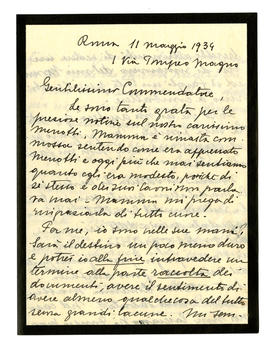 Roma 11 maggio 1934
1 Via Pompeo Magno
Gentilissimo Commendatore,
Le sono tanto grata per le
preziose notizie sul nostro carissimo
Menotti, Mamma è rimasta com-
mossa sentendo come era apprezzato
Menotti e oggi più che mai sentiamo
quanto egli era modesto, poichè di
sè stesso e dei suoi lavori non parla-
va mai - Mamma mi prega di
ringraziarla di tutto cuore.
Per me, io sono nelle sue mani!
Sarà il destino un poco meno duro
e potrei io alla fine intravedere un
termine alla parte raccolta dei
documenti, avere il sentimento di
avere almeno qualchecosa del tutto
senza grandi lacune. Mi sem-